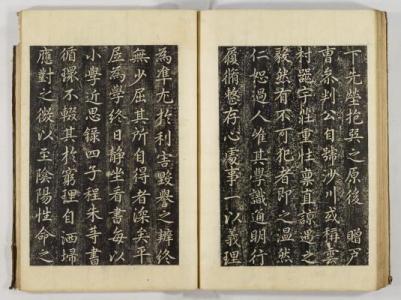 下先塋抱巽之原後 贈戶
曹參判公自號沙川或稱雲
村噐宇莊重性稟直諒遇之
毅然有不可犯者即之温然
仁恕過人惟其學識通明行
履脩整存心處事一以義理
為準尤於利害毀譽之辨終
無少屈其所自得者深矣平
居為學終日静坐看書每以
小學近思錄四子程朱等書
循環不輟其於窮理自洒掃
應對之微以至陰陽性命之